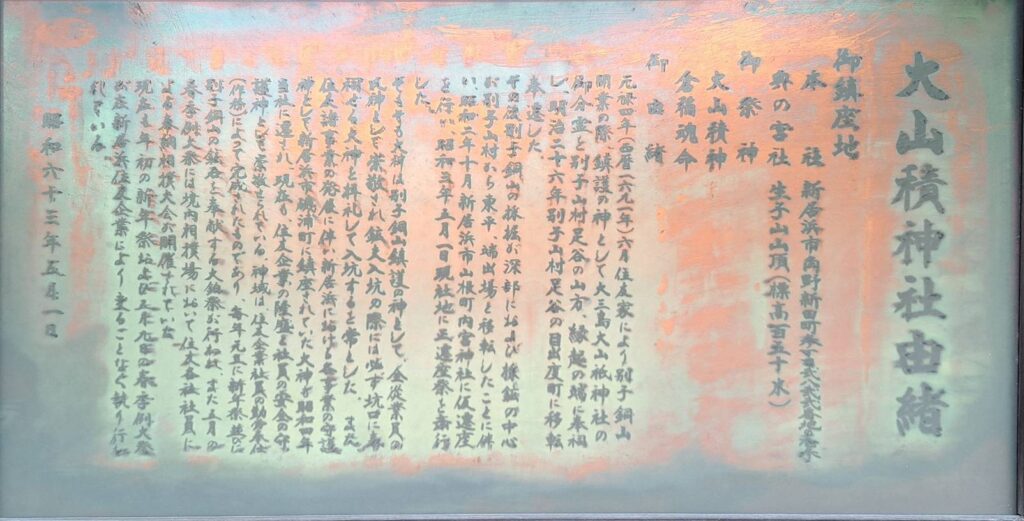 大山積神社由緒
御鎮座地
本社 新居浜市角野新田町
奥の宮社 生子山山頂(標高百五十米)
御祭神
大山積神
倉稲魂命
御由緒
元禄四年(西暦一六九一年)六月住友家により別子銅山
開業の際、鎮護の神として大三島大山祇神社の
御分霊を別子山村足谷の山方、縁起の端に奉祠
し、明治二十六年別子山村足谷の目出度町に移転
奉遷した。
その後別子銅山の採掘が深部におよび採鉱の中心
が別子山村から東平、端出場と移転したことに伴
い、昭和二年十月新居浜市山根町内宮神社に仮遷座
を行い、昭和三年五月一日現社地に正遷座祭を斎行
した。
そもそも大神は別子銅山鎮護の神として、全従業員の
氏神として崇敬され、鉱夫入坑の際には必ず坑口に奉
祠せる大神を拝礼して入坑するを常とした。また
住友諸事業の発展に伴い新居浜における各事業の守護
神として新居浜市磯浦町に鎮座されていた大神が昭和四年
当社に遷され、現在も住友企業の隆盛と社員の安全の守
護神として崇敬されている。神域は住友企業社員の勤労奉仕
(作務)によって完成されたものであり、毎年元旦に新年祭並びに
別子銅山の鉱石を奉献する大鉑祭が行われ、また五月の
春季例大祭には境内相撲場において住友各社社員に
よる奉納相撲大会が開催されていた
現在も年初の新年祭および五月九日の春季例大祭
が在新居浜住友企業により重ることなく執り行わ
れている
昭和六十三年五月一日